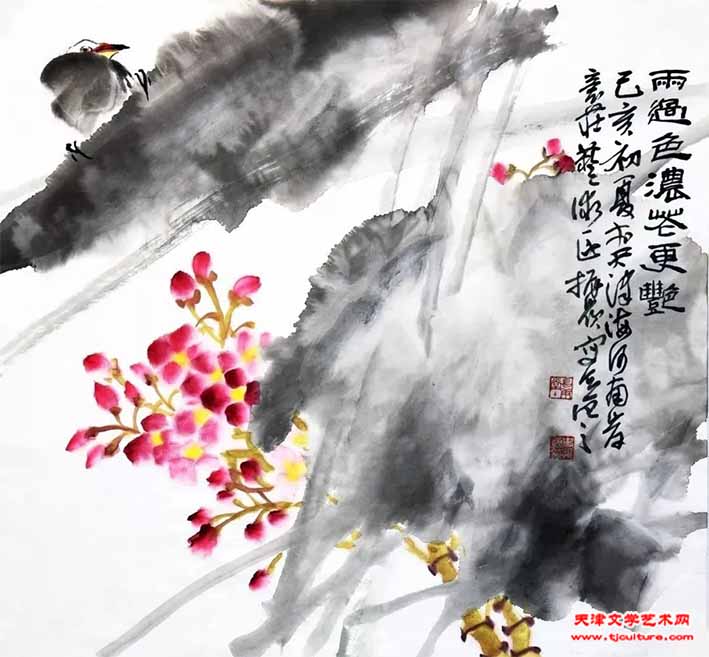 雨過色濃花更豔
己亥初夏於天津海河南岸
意莊藝術區振嶺寫
天津文学艺术网
www.tjculture.com